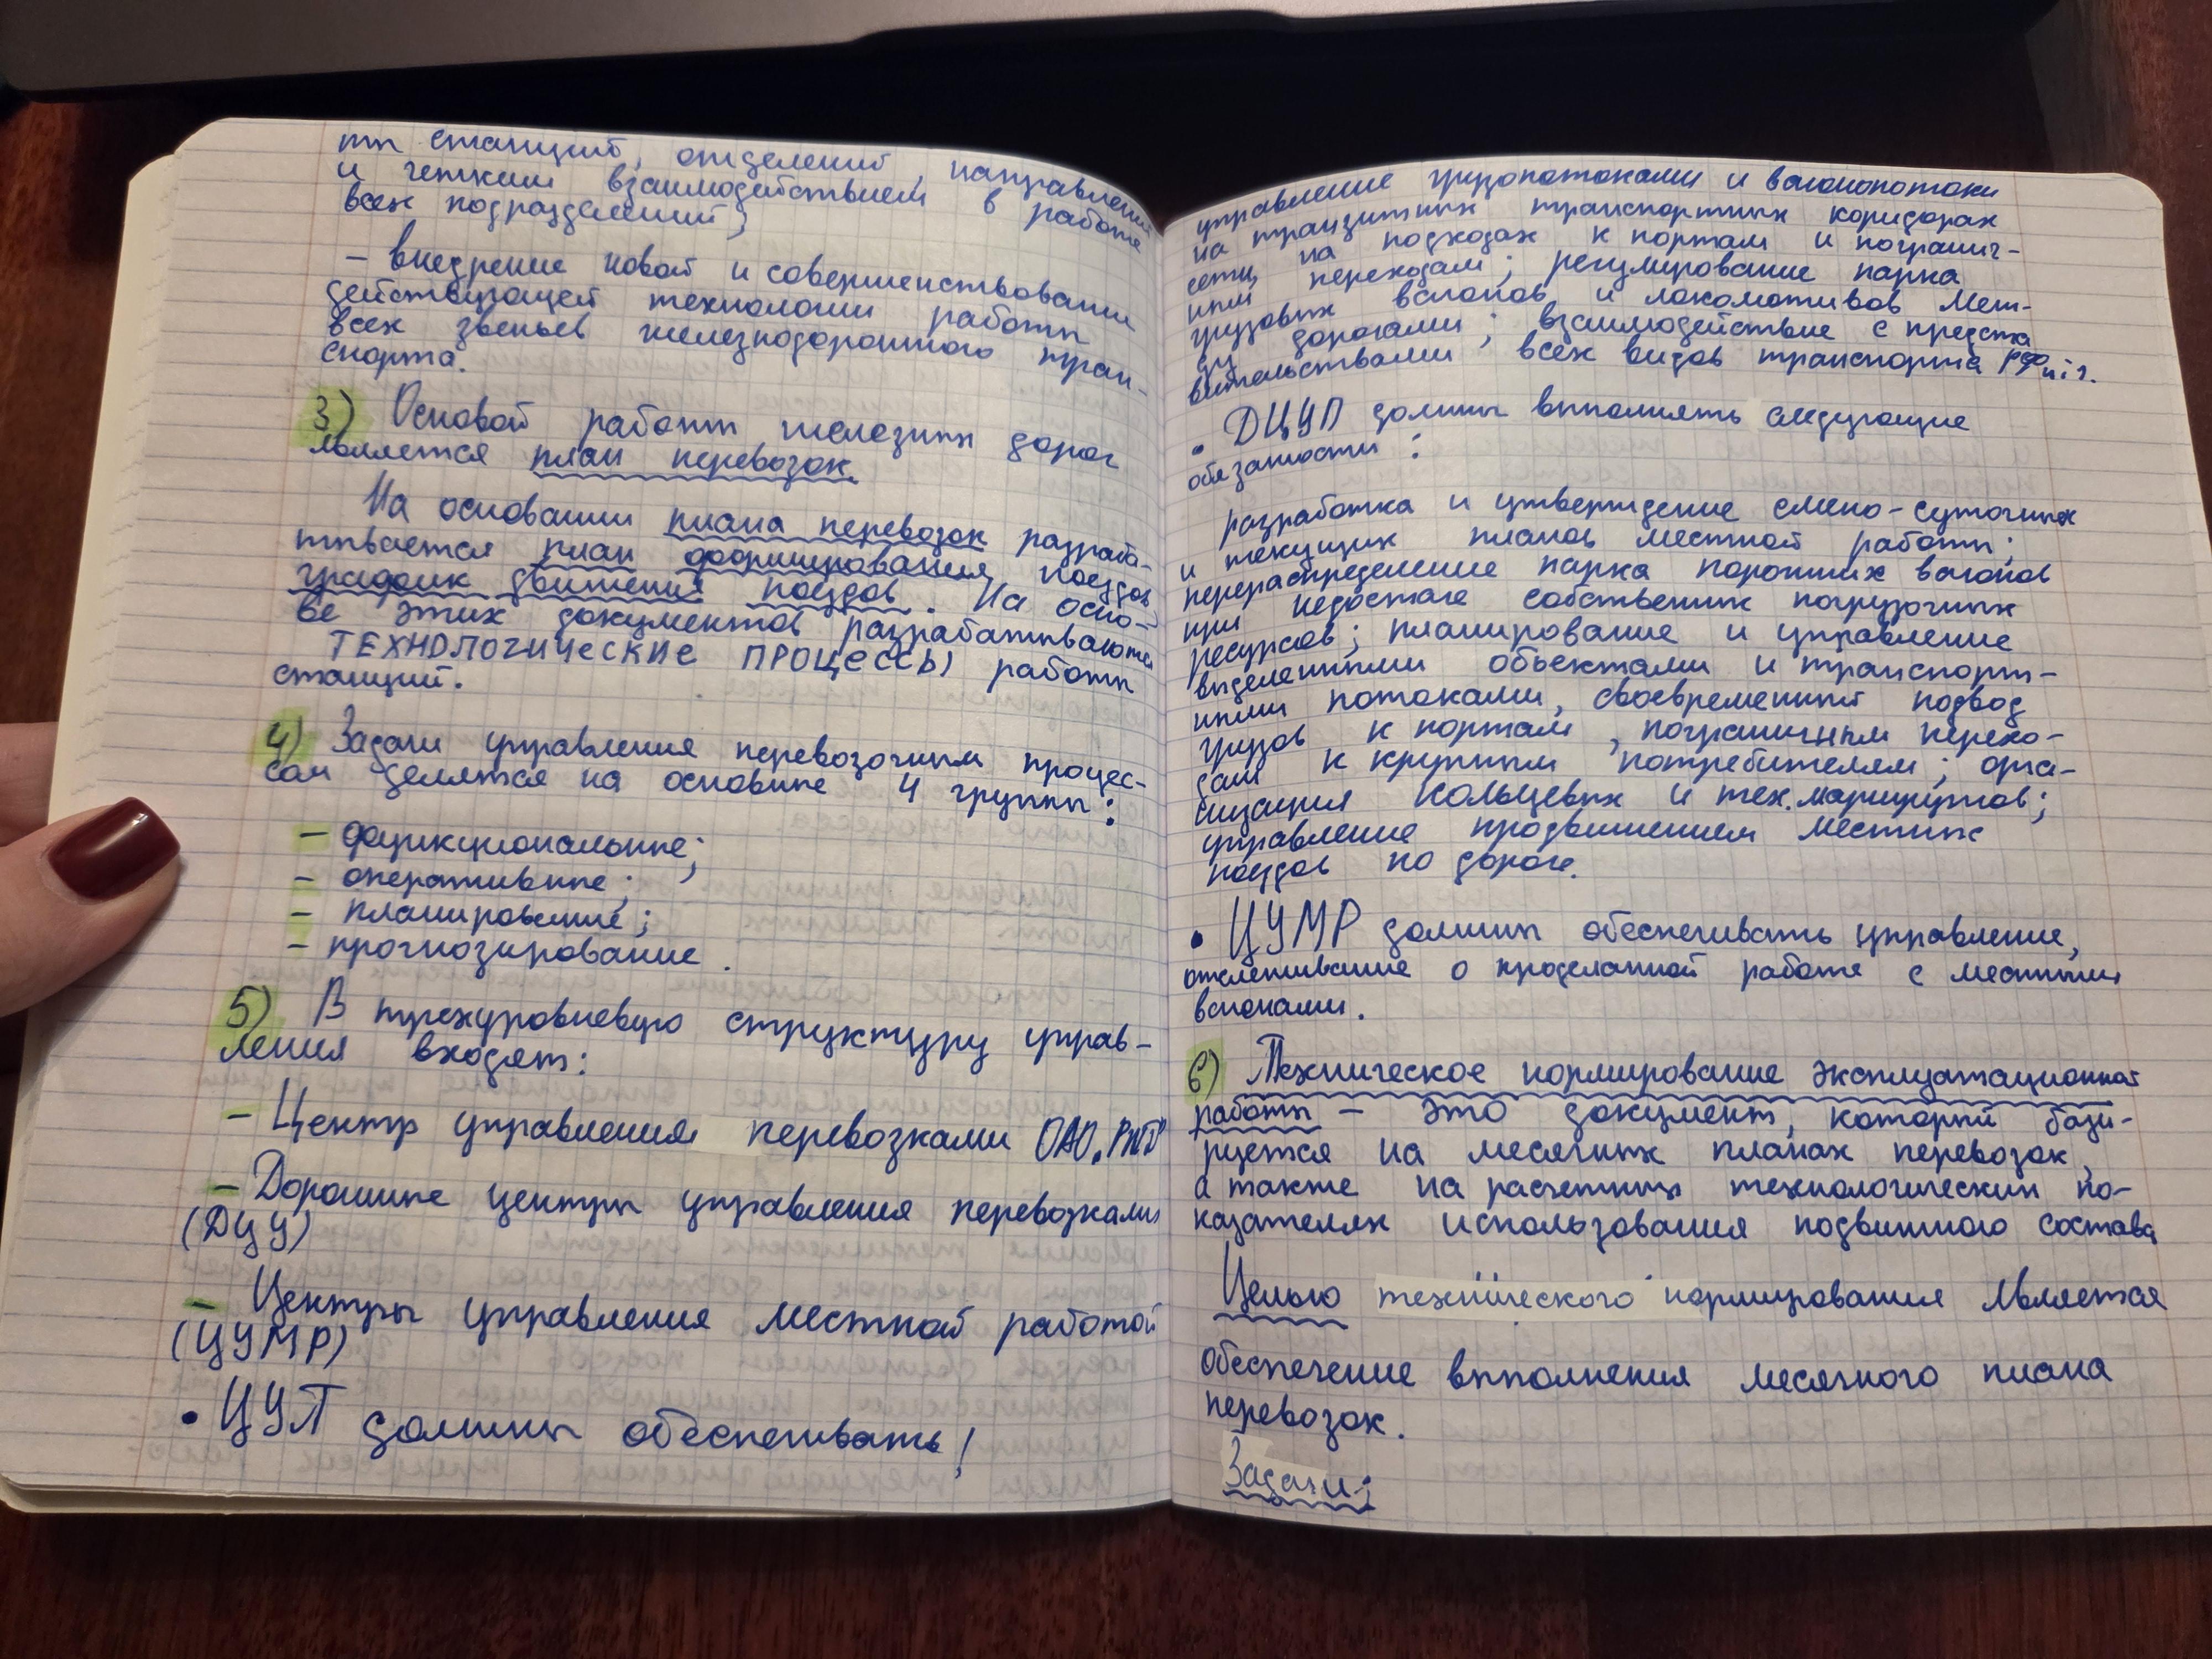 ты станций, отделений, направлений
и четким взаимодействием в работе
всех подразделений;
– внедрение новой и совершенствование
действующей технологии работы
всех звеньев железнодорожного тран-
спорта.
3) Основой работы железных дорог
является план перевозок.
На основании плана перевозок разраба-
тывается план формирования поездов
график движения поездов. На осно-
ве этих документов разрабатываются
ТЕХНОЛОГИЧЕСКИЕ ПРОЦЕССЫ работы
станций.
4) Задачи управления перевозочным процес-
сом делятся на основные 4 группы:
– функциональные;
– оперативные;
– планирование;
– прогнозирование.
5) В трехуровневую структуру управ-
ления входят:
– Центр управления перевозками ОАО "РЖД"
– Дорожные центры управления перевозками
(ДЦУ)
– Центры управления местной работой
(ЦУМР)
• ЦУП должны обеспечивать!
управление грузопотоками и вагонопотоки
на транзитных транспортных коридорах
сети, на подходах к портам и погранич-
ным переходам; регулирование парка
грузовых вагонов и локомотивов меж-
ду дорогами; взаимодействие с предста
вительствами всех видов транспорта РФ
• ДЦУП должны выполнять следующие
обязанности:
разработка и утверждение смено-суточных
и текущих планов местной работы;
перераспределение парка порожних вагонов
при недостаче собственных погрузочных
ресурсов; планирование и управление
выделенными объектами и транспорт-
ными потоками, своевременный подвод
грузов к портам, пограничным перехо-
дам к крупным потребителям; орга-
низация кольцевых и тех. маршрутов;
управление продвижением местных
поездов по дороге.
• ЦУМР должны обеспечивать управление,
отслеживание о проделанной работе с местными
вагонами.
6) Техническое нормирование эксплуатационной
работы – это документ, который бази-
руется на месячных планах перевозок,
а также на расчетных технологических по-
казателях использования подвижного состава
Целью технического нормирования является
обеспечение выполнения месячного плана
перевозок.
Задачи: